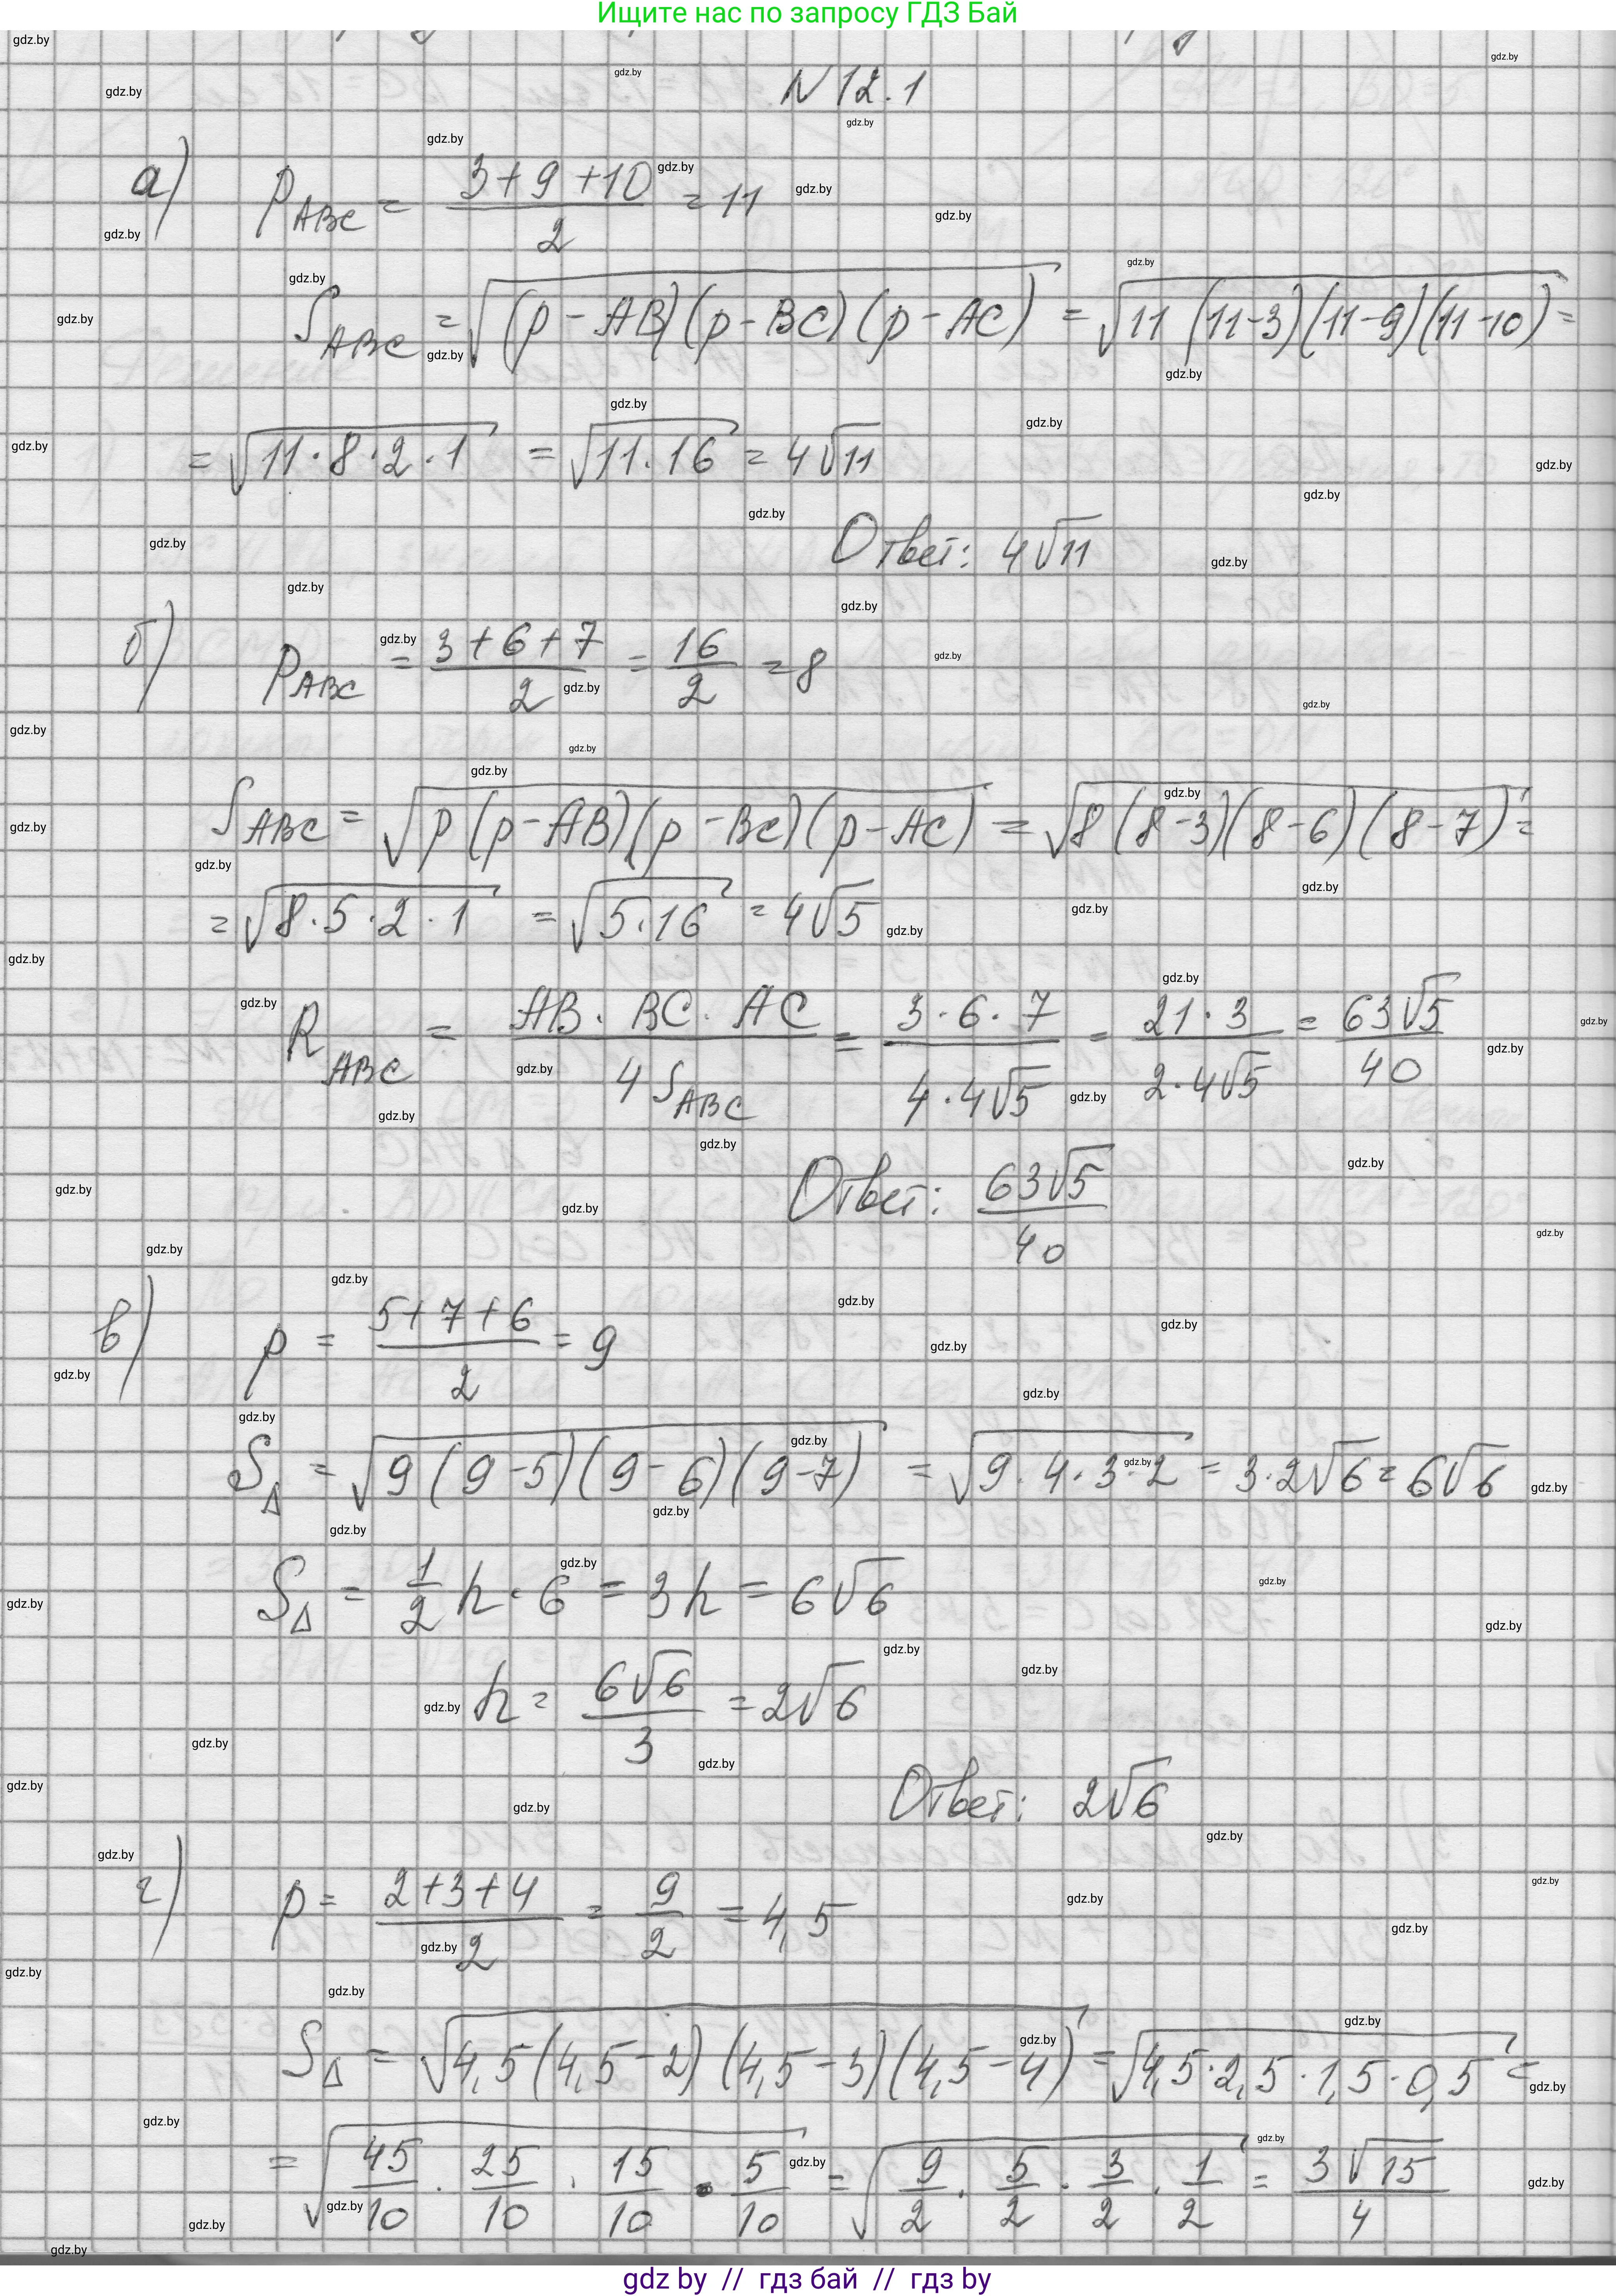 Ищите нас по запросу ГДЗ Бай
N 12.1
а) p_ABC = (3+9+10)/2 = 11
S_ABC = √((p-AB)(p-BC)(p-AC)) = √(11(11-3)(11-9)(11-10)) =
= √(11·8·2·1) = √(11·16) = 4√11
Ответ: 4√11
б) p_ABC = (3+6+7)/2 = 16/2 = 8
S_ABC = √(p(p-AB)(p-BC)(p-AC)) = √(8(8-3)(8-6)(8-7)) =
= √(8·5·2·1) = √(5·16) = 4√5
R_ABC = (AB·BC·AC)/(4 S_ABC) = (3·6·7)/(4·4√5) = (21·3)/(2·4√5) = 63√5/40
Ответ: 63√5/40
в) p = (5+7+6)/2 = 9
S_Δ = √(9(9-5)(9-6)(9-7)) = √(9·4·3·2) = 3·2√6 = 6√6
S_Δ = 1/2 h·6 = 3h = 6√6
h = 6√6/3 = 2√6
Ответ: 2√6
г) p = (2+3+4)/2 = 9/2 = 4,5
S_Δ = √(4,5(4,5-2)(4,5-3)(4,5-4)) = √(4,5·2,5·1,5·0,5) =
= √(45/10 · 25/10 · 15/10 · 5/10) = √(9/2 · 5/2 · 3/2 · 1/2) = 3√15/4
gdz by // гдз бай // гдз by